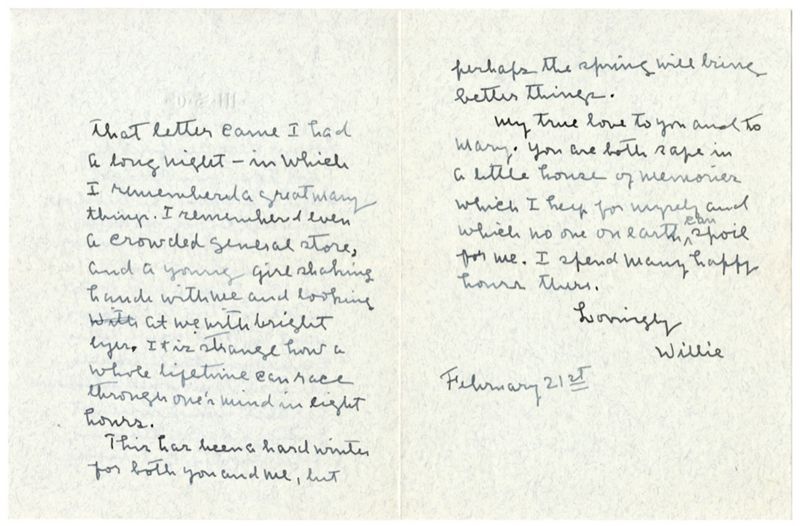 that letter came I had
a long night – in which
I rememberd a great many
things. I rememberd even
a crowded general store,
and a young girl shaking
hands with me and looking
with at me with bright
eyes. It is strange how a
whole lifetime can race
through one's mind in eight
hours.
This has been a hard winter
for both you and me, but
perhaps the spring will bring
better things.
My true love to you and to
Mary. You are both safe in
a little house of memories
which I keep for myself and
which no one on earth can spoil
for me. I spend many happy
hours there.
Lovingly
Willie
February 21st